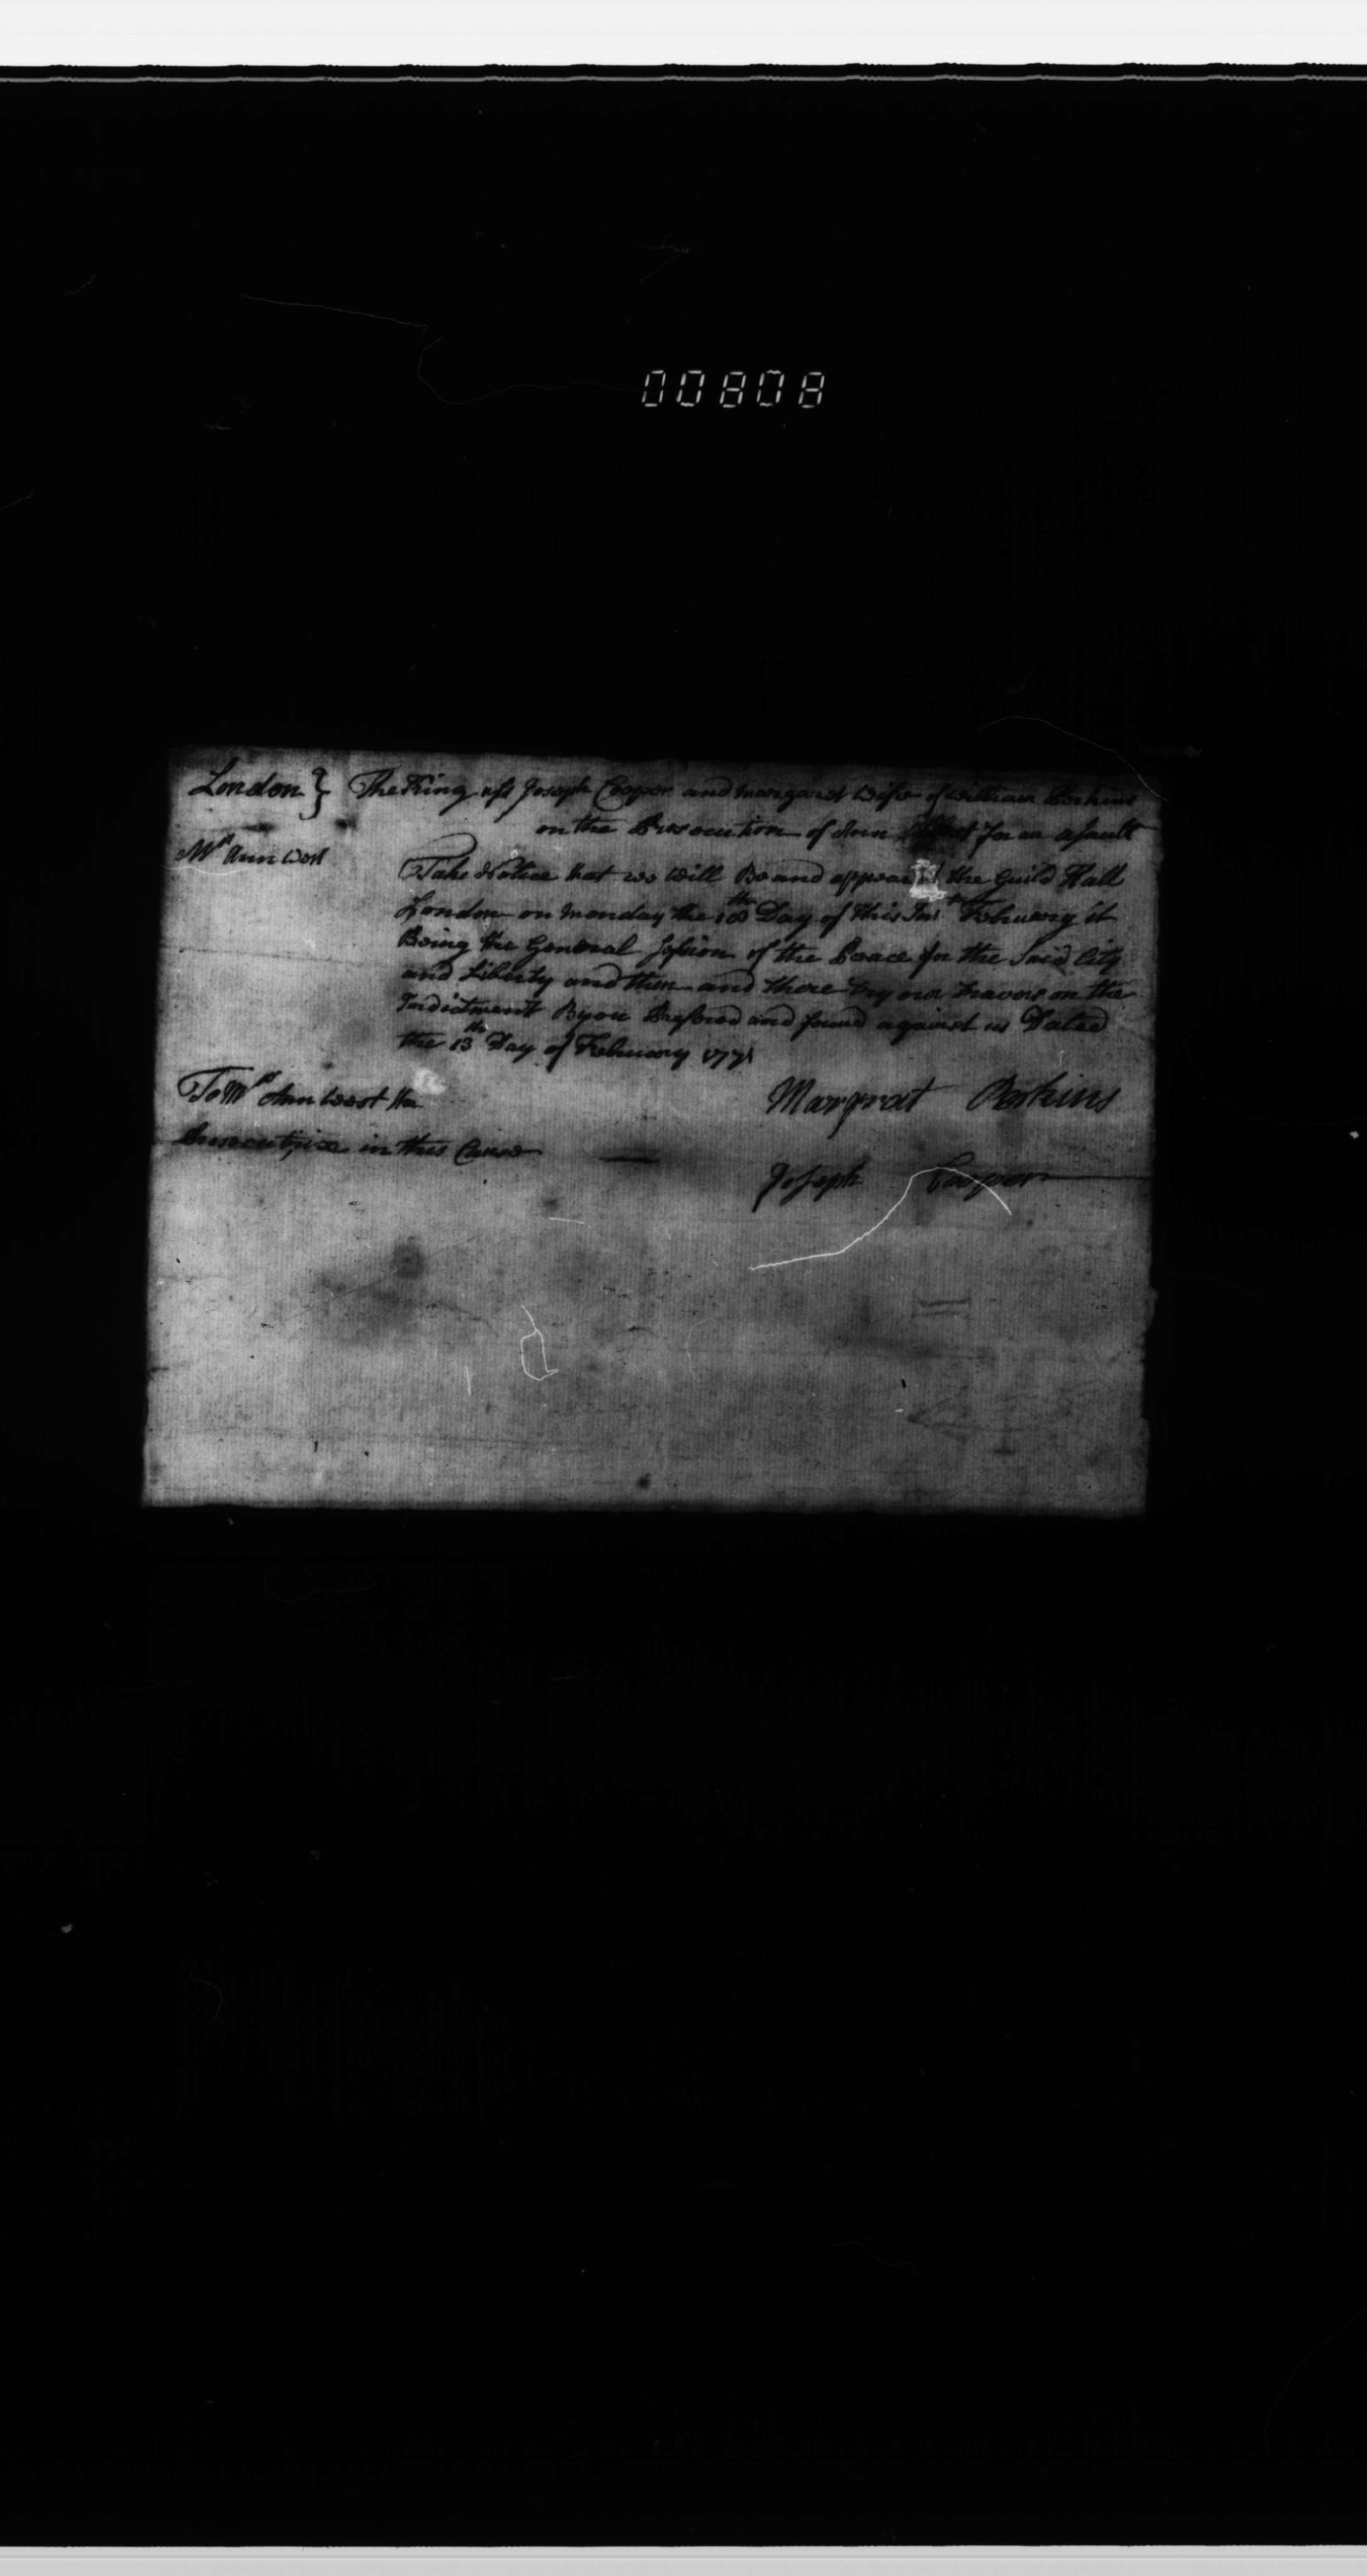 00808
London } The King agst Joseph Cooper and margaret Wife of William Perkins
on the Prosecution of Ann West for an asault
Mrs Ann West
Take Notice that we will Be and appear the Guild Hall
London on Monday the 18th Day of this February it
Being the General Session of the Peace for the Said City
and Liberty and then and there try our travers on the
Indictment By you Prefered and found against us Dated
the 13th Day of February 1771
To Mrs Ann West the
Prosecutrixe in this Cause
Margrat Perkins
Joseph Cooper